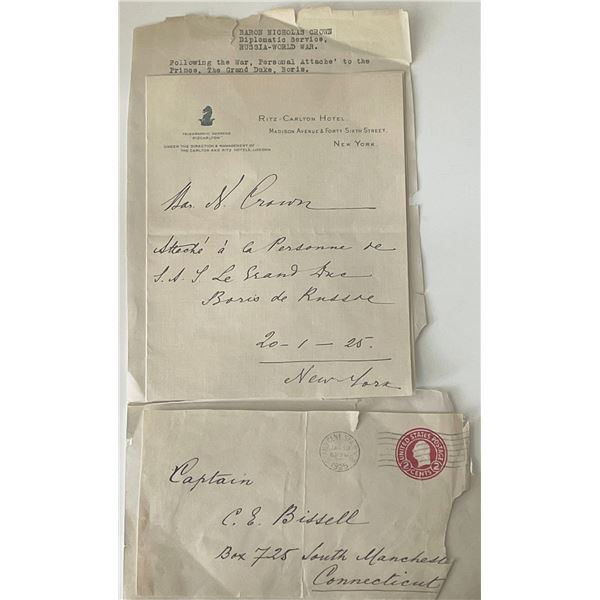 BARON NICHOLAS CROWN
Diplomatic Service,
RUSSIA-WORLD WAR.
Following the War, Personal Attache' to the
Prince, The Grand Duke, Boris.
TELEGRAPHIC ADDRESS
"RIZCARLTON"
UNDER THE DIRECTION & MANAGEMENT OF
THE CARLTON AND RITZ HOTELS, LONDON
RITZ-CARLTON HOTEL.
MADISON AVENUE & FORTY SIXTH STREET,
NEW YORK.
Bar. N. Crown
Attaché à la Personne de
S.A.I. Le Grand Duc
Boris de Russie
20-1-25.
New-York
1925
UNITED STATES POSTAGE
2 CENTS 2
Captain
C. E. Bissell
Box 725 South Manchest
Connecticut